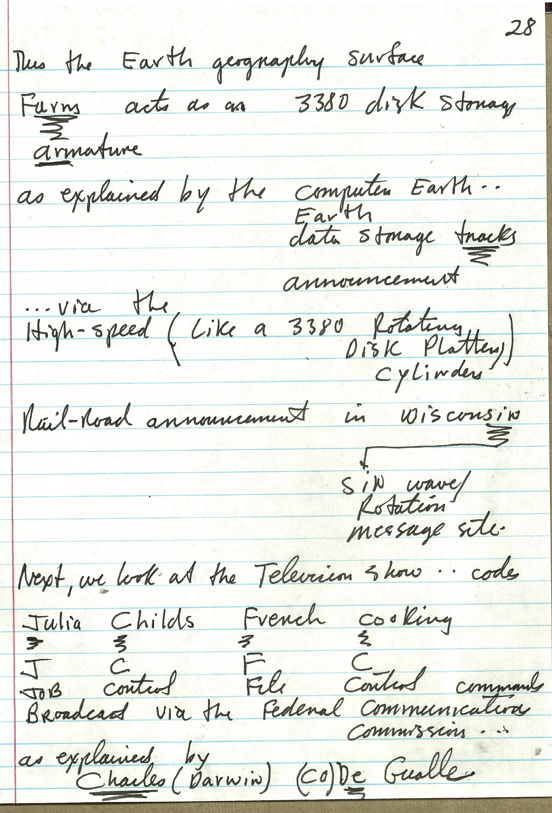 28
Thus the Earth geography surface
Farm acts as an 3380 disk storage
armature
as explained by the computer Earth..
Earth
data storage tracks
announcement
...via the
High-speed (Like a 3380 Rotating
Disk Platters)
Cylinders
Rail-Road announcement in Wisconsin
SiN wave/
Rotation
message site.
Next, we look at the Television show .. codes
Julia Childs French cooking
J C F C
JOB control File Control commands
Broadcast via the Federal Communications
Commission ...
as explained by
Charles (Darwin) (CO)De Gualle